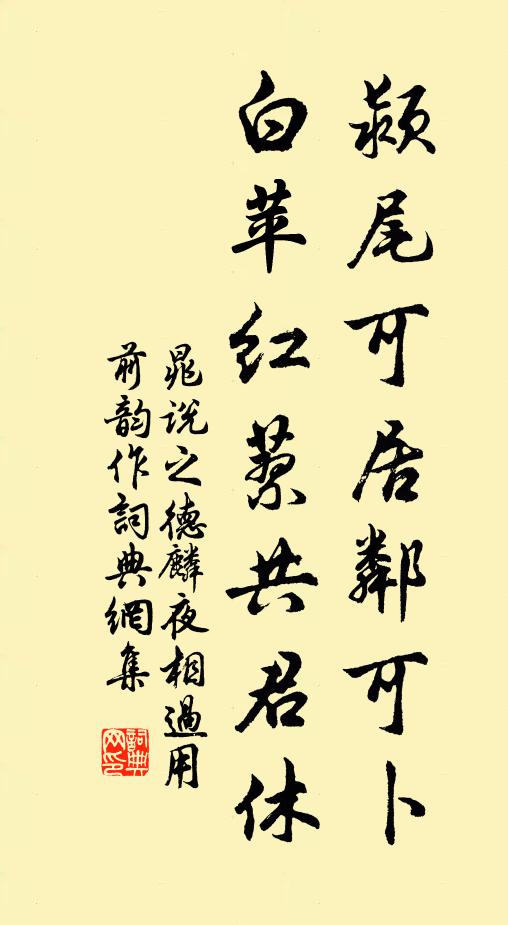 颍尾可居鄰可卜
白苹红蓼共君休
晁说之德麟夜相過用
前韵作詞典網集
詞典
网印